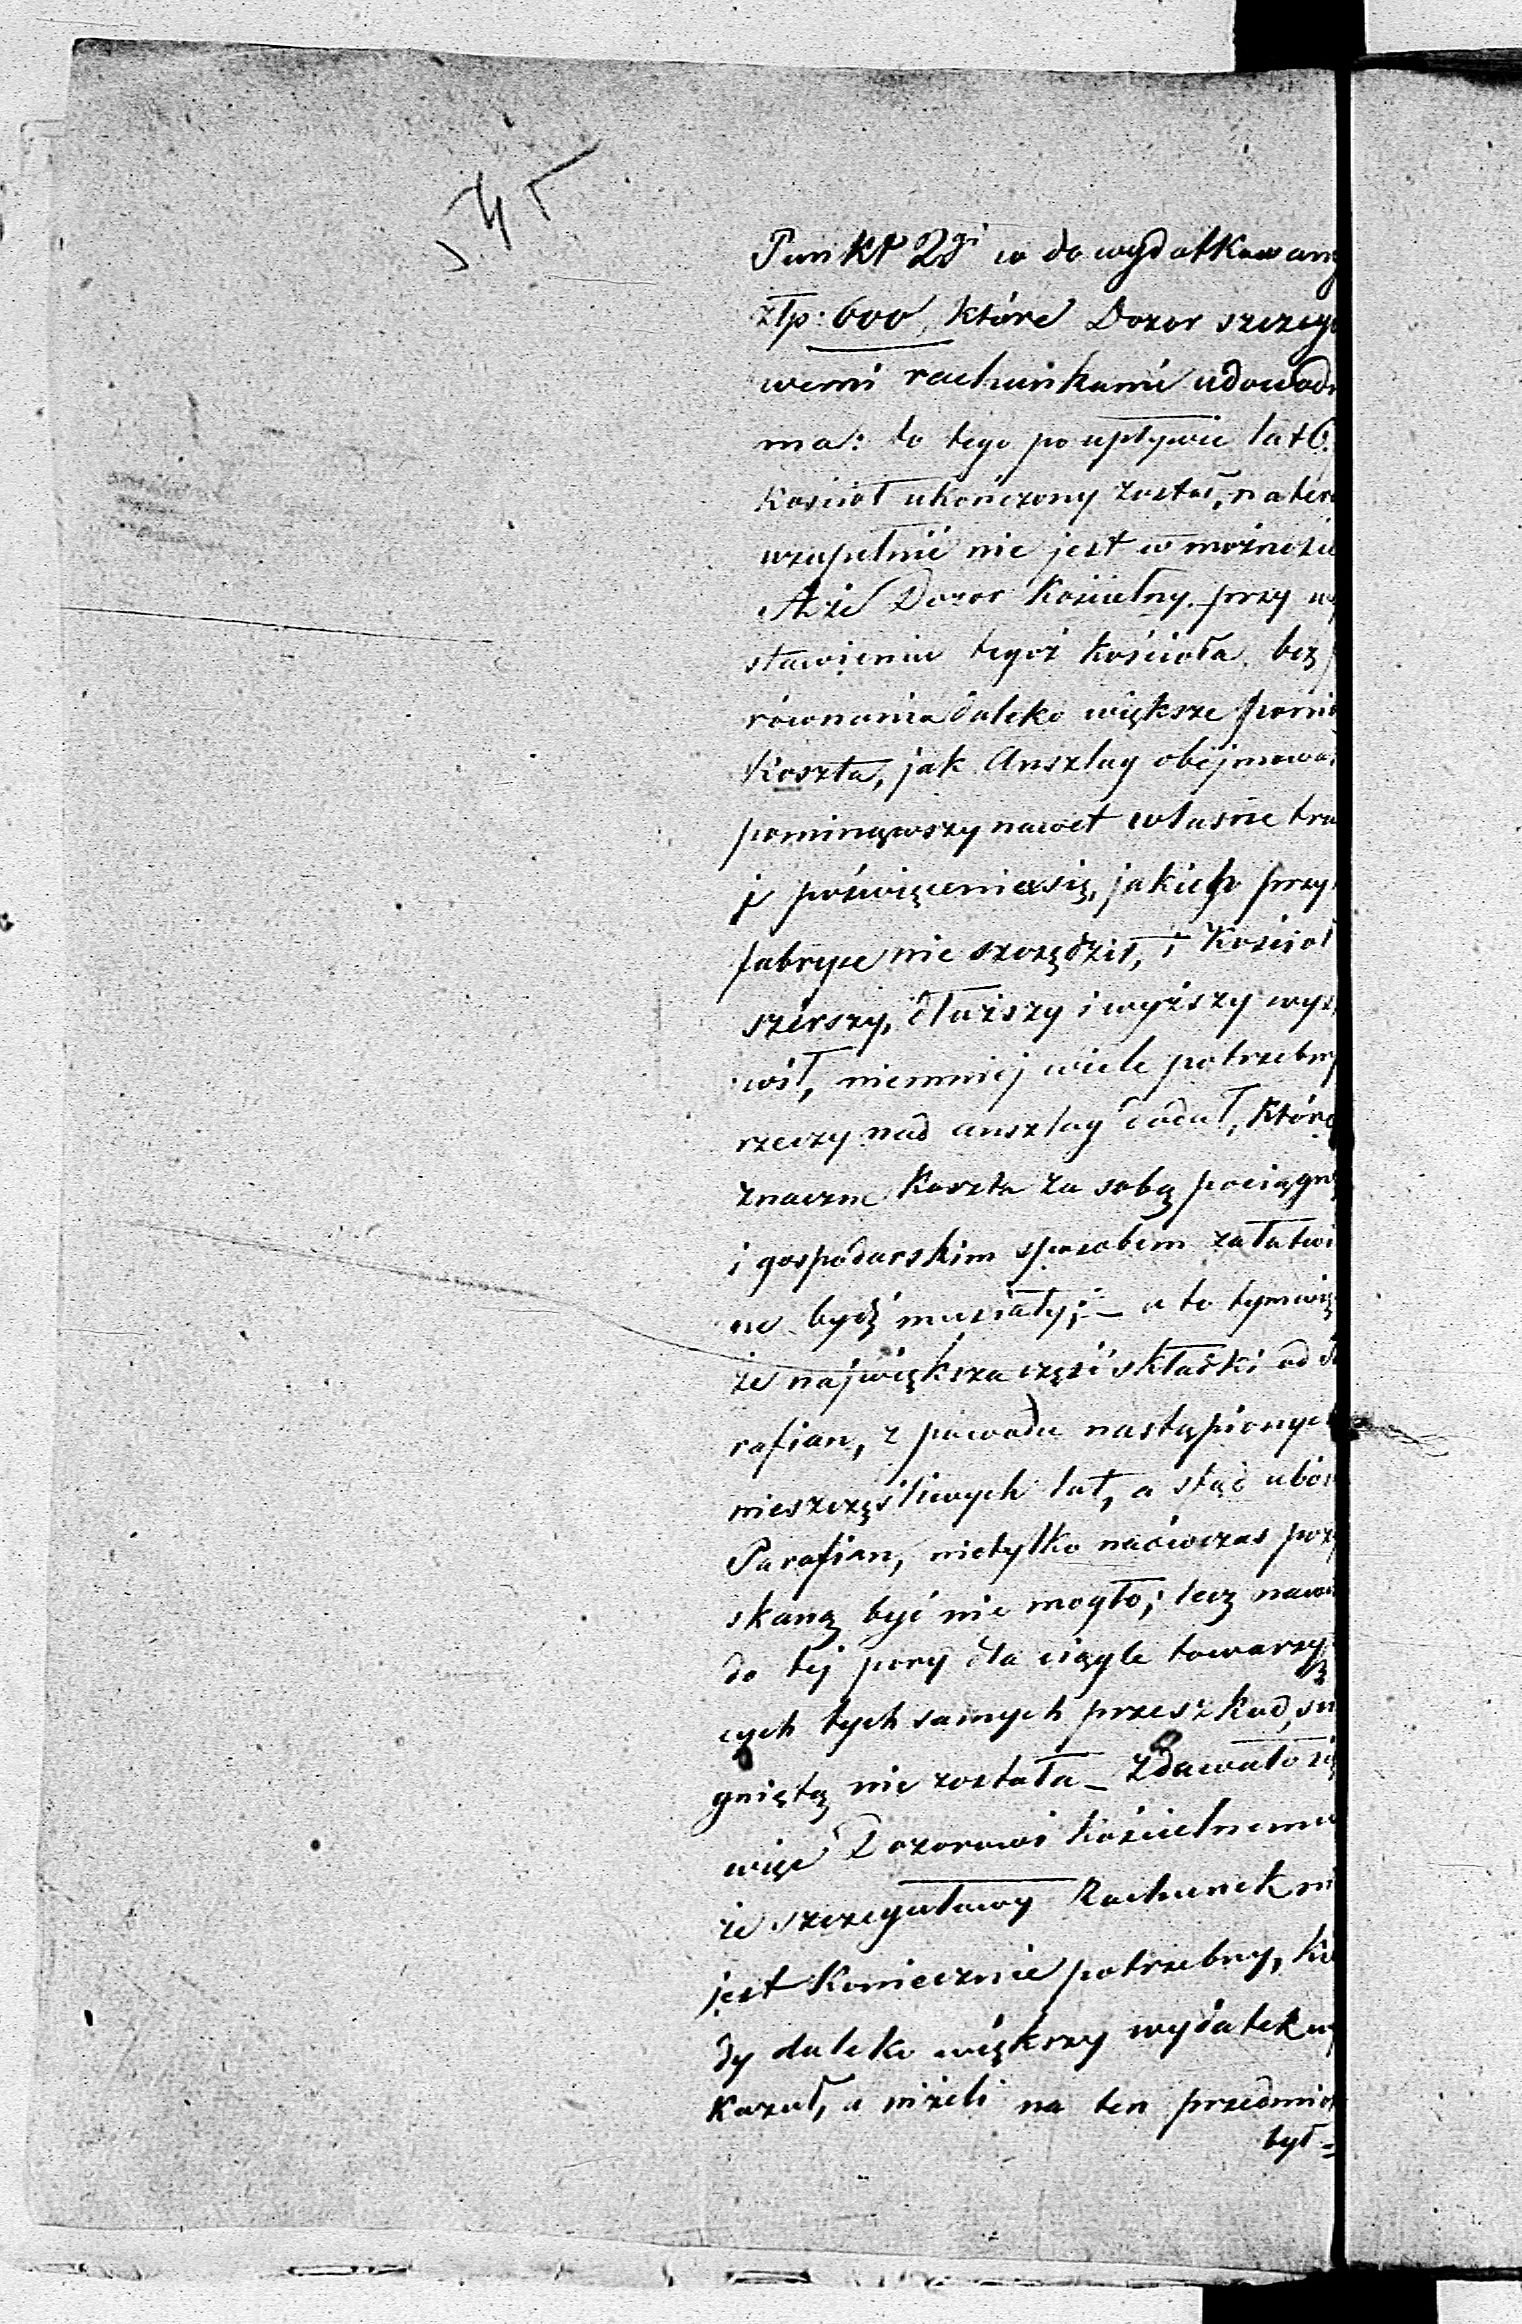 Punkt 2gi co do wydatkowany
złp. 600, które Dozor szczegó
wemi rachunkami udowodn
ma: to tego po upływie lat 6.
Kościoł ukończony został, na ter
uzupełnić nie jest w możności
A że Dozor Kościelny przy wy
stawieniu tegoż Kościoła, bez p
równania daleko większe ponió
Koszta, jak Anszlag obejmował
pominąwszy nawet własne tru
i poświęcenia się, jakich przy
fabryce nie szczędził, i Kościoł
szérszy, dłuższy i wyższy wys
wił, niemniej wiele potrzebny
rzeczy nad anszlag dodał, które
znaczne Koszta za sobą pociągnę
i gospodarskim sposobem załatwi
ne bydź musiały; – a to tym wię
że największa część składki od
rafian, z powodu nastąpionych
nieszczęśliwych lat, a stąd ubós
Parafian, nietylko naówczas pozy
skaną być nie mogło; lecz nawe
do tej pory dla ciągle towarzyszą
cych tych samych przeszkod, ścią
gniętą nie została – Zdawało się
więc Dozorowi Kościelnemu
że szczegułowy Rachunek ni
jest Koniecznie potrzebny, Kie
dy daleko większy wydatek wy
Kazał, a niżeli na ten przedmiot
był =